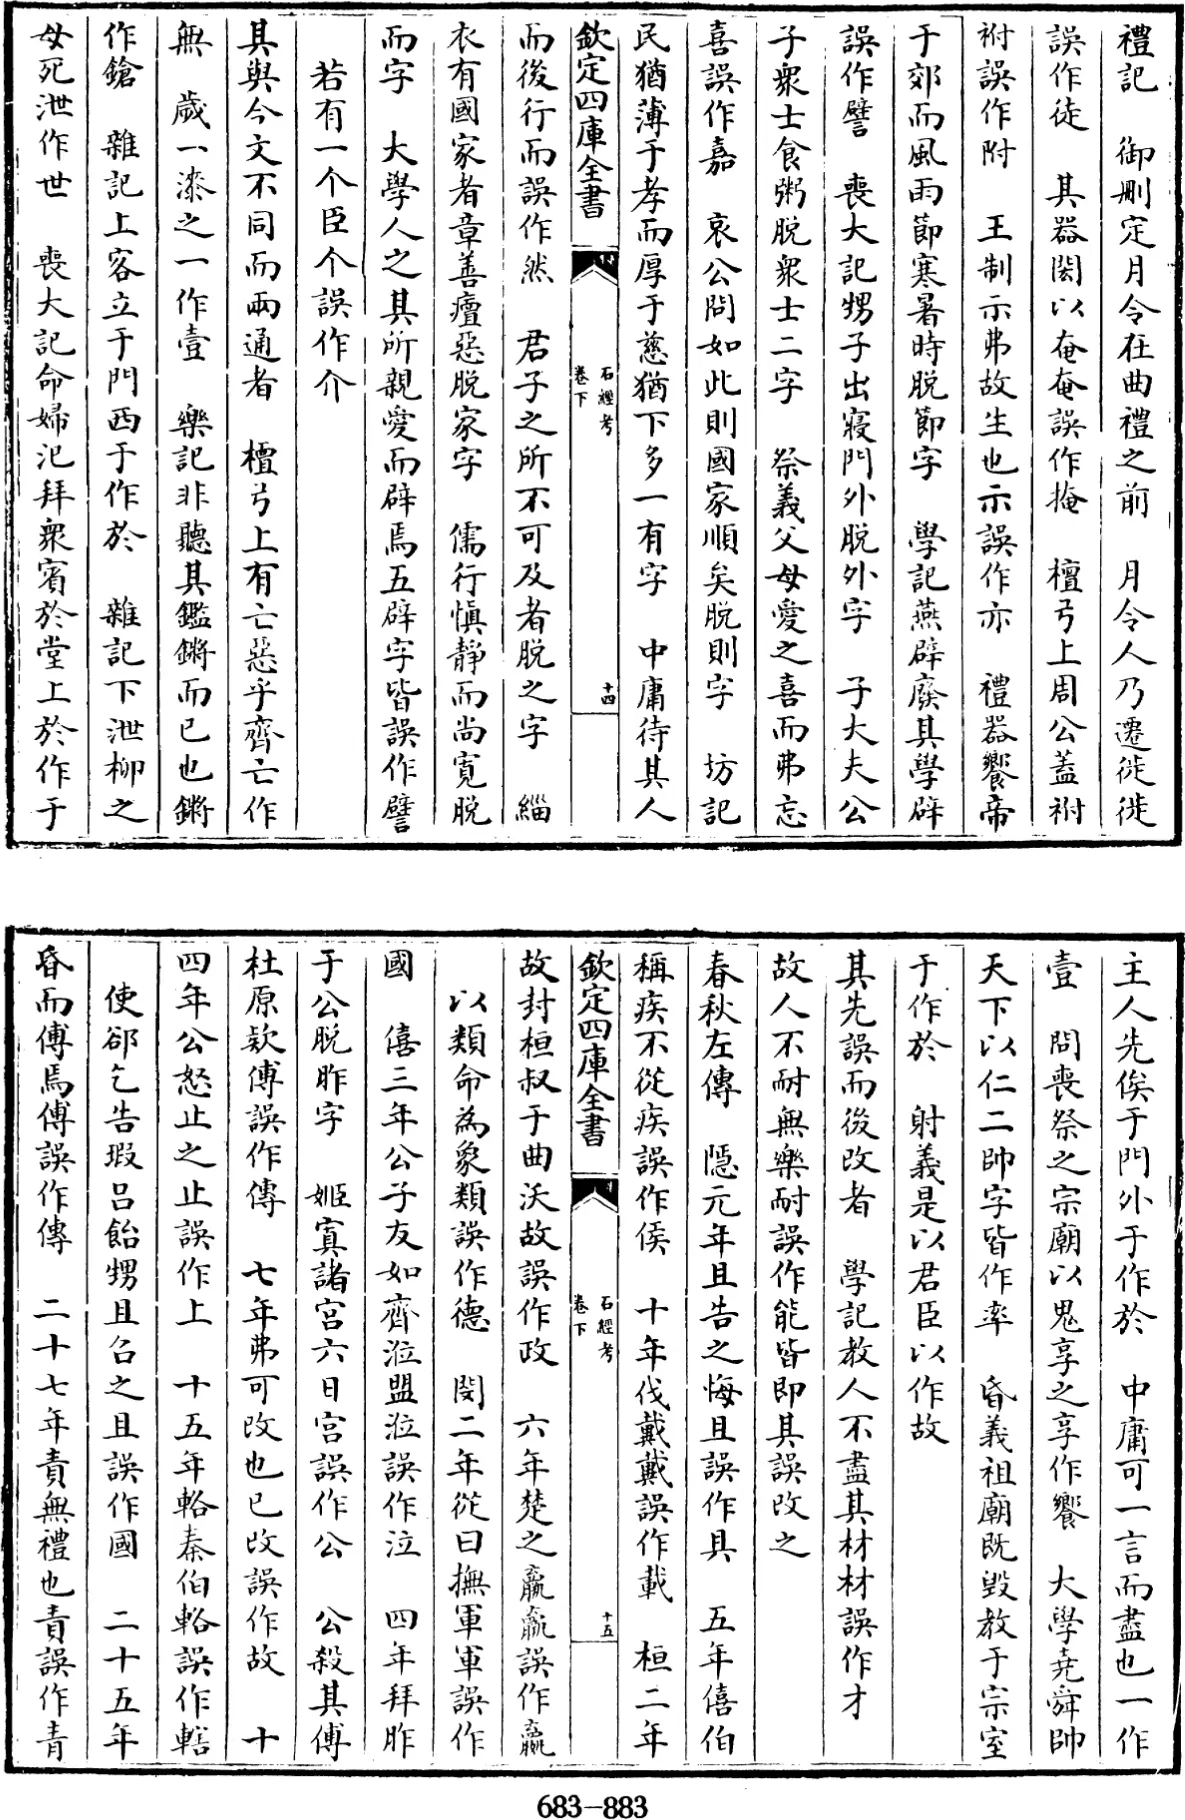 禮記　御刪定月令在曲禮之前　月令人乃遷徙徙
誤作徒　其器閎以奄奄誤作掩　檀弓上周公蓋祔
祔誤作附　王制示弗故生也示誤作亦　禮器饗帝
于郊而風雨節寒暑時脫節字　學記燕辟廢其學辟
誤作譬　喪大記甥子出寢門外脫外字　子大夫公
子衆士食粥脫衆士二字　祭義父母愛之喜而弗忘
喜誤作嘉　哀公問如此則國家順矣脫則字　坊記
民猶薄于孝而厚于慈猶下多一有字　中庸待其人
欽定四庫全書
石經考
卷下
十四
而後行而誤作然　君子之所不可及者脫之字　緇
衣有國家者章善癉惡脫家字　儒行慎靜而尚寬脫
而字　大學人之其所親愛而辟焉五辟字皆誤作譬
若有一个臣个誤作介
其與今文不同而兩通者　檀弓上有亡惡乎齊亡作
無　歲一漆之一作壹　樂記非聽其鑑鏘而已也鏘
作鎗　雜記上客立于門西于作於　雜記下泄柳之
母死泄作世　喪大記命婦汜拜衆賓於堂上於作于
主人先俟于門外于作於　中庸可一言而盡也一作
壹　問喪祭之宗廟以鬼享之享作饗　大學堯舜帥
天下以仁二帥字皆作率　昏義祖廟既毀教于宗室
于作於　射義是以君臣以作故
其先誤而後改者　學記教人不盡其材材誤作才
故人不耐無樂耐誤作能皆即其誤改之
春秋左傳　隱元年且告之悔且誤作具　五年僖伯
稱疾不從疾誤作侯　十年伐戴戴誤作載　桓二年
欽定四庫全書
石經考
卷下
十五
故封桓叔于曲沃故誤作政　六年楚之羸羸誤作贏
以類命為象類誤作德　閔二年從曰撫軍軍誤作
國　僖三年公子友如齊涖盟涖誤作泣　四年拜昨
于公脫昨字　姬寘諸宮六日宮誤作公　公殺其傅
杜原款傅誤作傳　七年弗可改也已改誤作故　十
四年公怒止之止誤作上　十五年輅秦伯輅誤作轄
使郤乞告瑕呂飴甥且召之且誤作國　二十五年
昏而傅焉傅誤作傳　二十七年責無禮也責誤作青
683—883